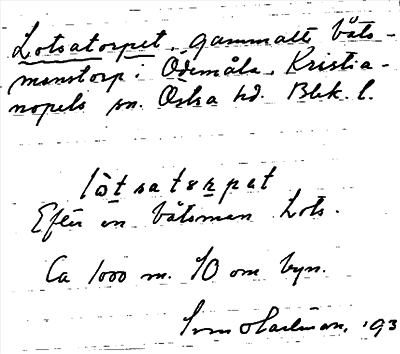 Lotsatorpet, gammalt båts-
manstorp i Ödemåla, Kristia-
nopels sn. Östra hd. Blek. l.
lòtsatɘrpat
Efter en båtsman Lots.
Ca 1000 m. SO om byn.
'93